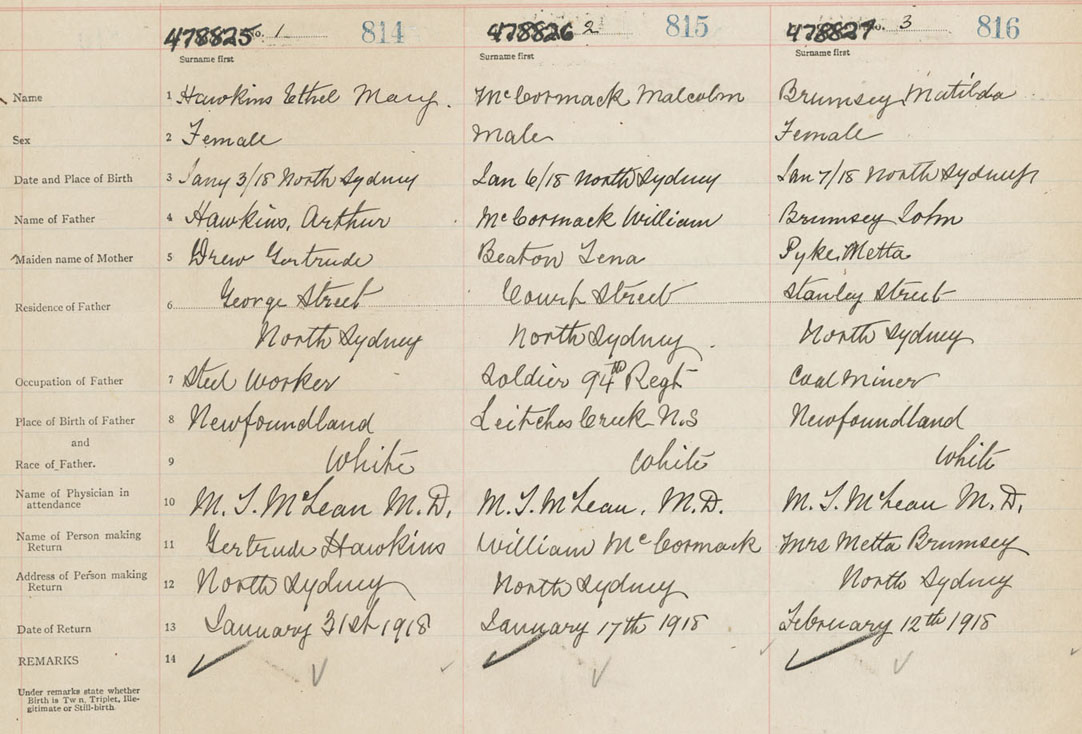 478825 No. 1 814 478826 2 815 478827 No. 3 816
Surname first Surname first Surname first
Name 1 Hawkins Ethel Mary. McCormack Malcolm Brumsey Matilda
Sex 2 Female Male Female
Date and Place of Birth 3 Jany 3/18 North Sydney Jan 6/18 North Sydney Jan 7/18 North Sydney
Name of Father 4 Hawkins, Arthur McCormack William Brumsey John
Maiden name of Mother 5 Drew Gertrude Beaton Lena Pyke Metta
Residence of Father 6 George Street Court Street Stanley Street
North Sydney North Sydney. North Sydney
Occupation of Father 7 Steel Worker Soldier 94th Regt Coal Miner
Place of Birth of Father 8 Newfoundland Leitches Creek N.S Newfoundland
and
Race of Father. 9 White White White
Name of Physician in attendance 10 M. T. McLean M.D. M. T. McLean, M.D. M. T. McLean M.D.
Name of Person making Return 11 Gertrude Hawkins William McCormack Mrs Metta Brumsey
Address of Person making Return 12 North Sydney North Sydney North Sydney
Date of Return 13 January 31st 1918 January 17th 1918 February 12th 1918
REMARKS 14
Under remarks state whether
Birth is Tw n, Triplet, Ille-
gitimate or Still-birth.